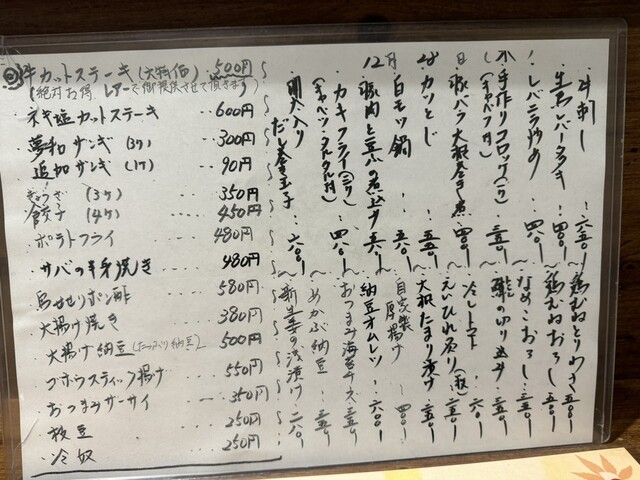 牛カットステーキ(大特価) 500円
(絶対お得、レアーで御提供させて頂きます)
ネギ塩カットステーキ ・・600円
夢和ザンギ(3ケ) ・・・300円
追加ザンギ(1ケ) ・・・90円
ぎょうざ
餃子 (3ケ) ・・・・350円
(4ケ) ・・・・450円
ポテトフライ ・・・・480円
サバの半身焼き ・・・・480円
鳥せせりポン酢 ・・・580円
大揚げ焼き ・・・380円
大揚げ納豆(たっぷり納豆) 500円
ゴボウスティック揚げ ・・・550円
おつまみザーサイ ・・・350円
枝豆 ・・・250円
冷奴 ・・・250円
・牛刺し ・・六五〇
・生ホッ
・レバニラ炒め ・・四八〇
・手作りコロッケ(二ケ) ・・三五〇
(キャベツ付)
豚バラ大根
カツとじ ・・五五〇
白モツ鍋 ・・五八〇
12月
豚肉と
カキフライ(三ケ) ・・四八〇
(キャベツ・タルタル付)
明太入り
だし巻玉子 ・・六〇〇
鶏むねとりわさ 五五〇
鶏むねおろし 五五〇
なめこおろし ・・三五〇
の切り込み ・・三五〇
冷しトマト ・・
えいひれ炙り
大根たまり漬け ・・二五〇
自家製
厚揚げ ・・四〇〇
納豆オムレツ ・・六〇〇
おつまみ海苔チーズ 三五〇
めかぶ納豆 ・・三五〇
新生姜の浅漬け ・・二八〇